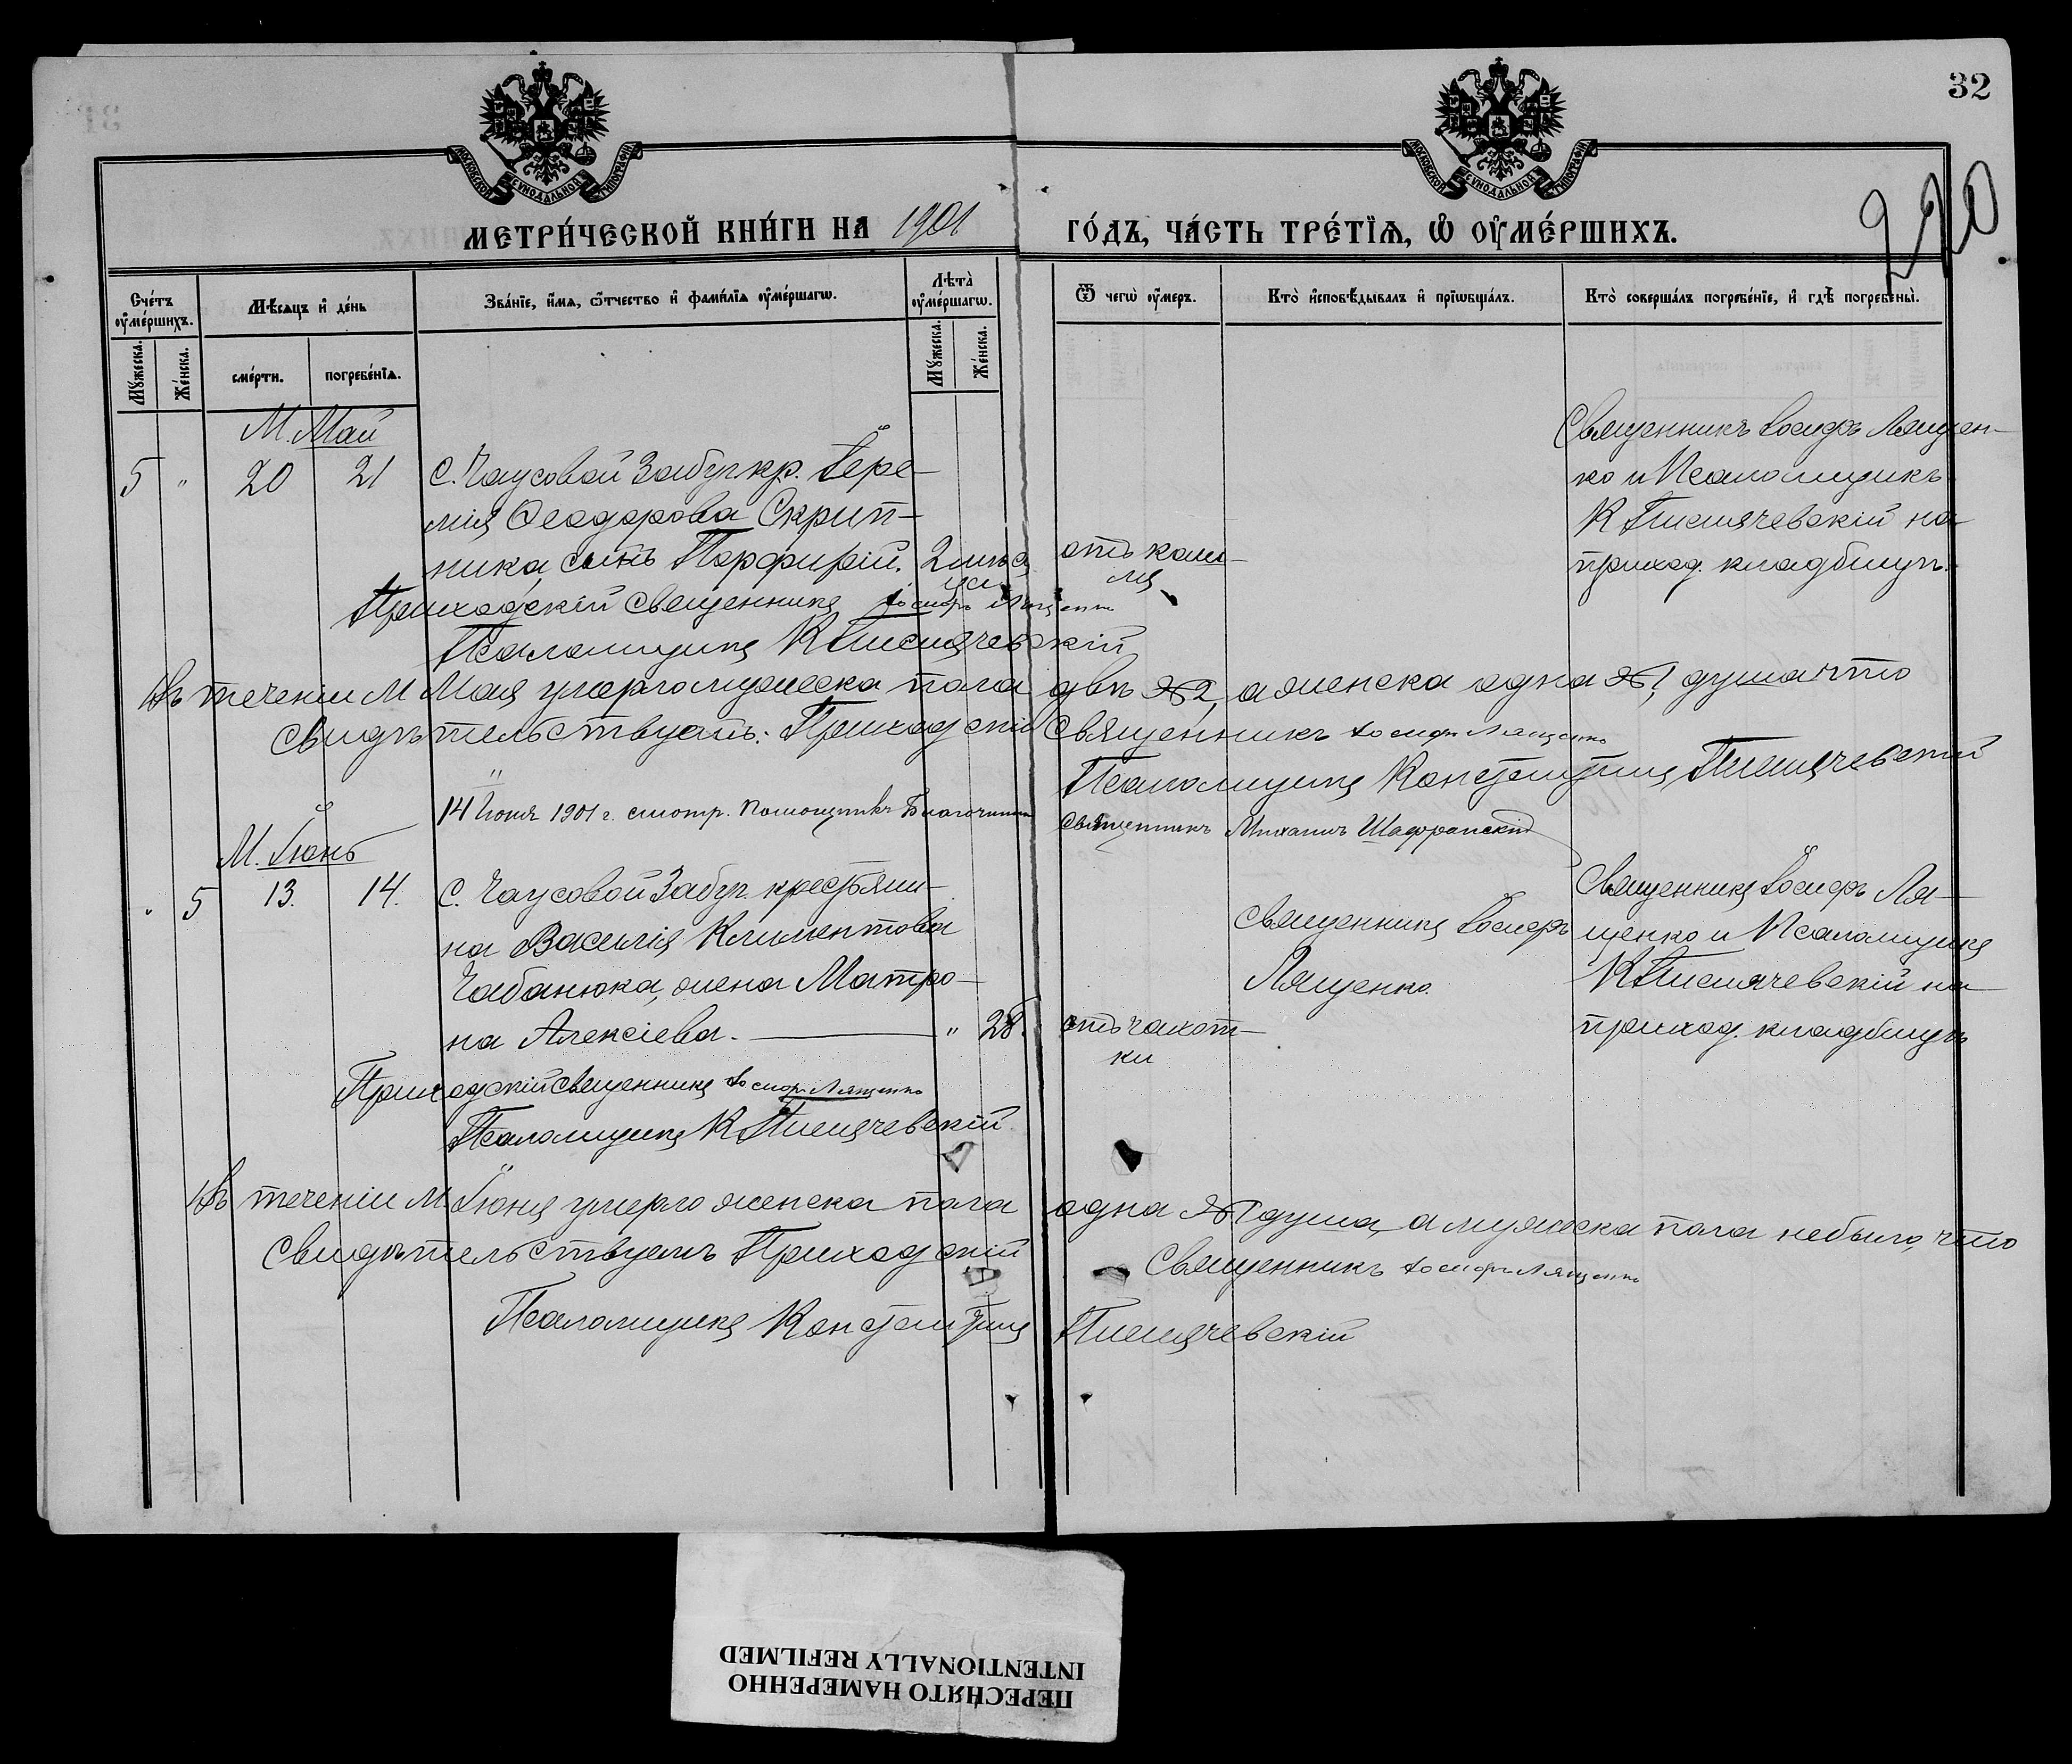 32
220
МОСКОВСКОЙ СѴНОДАЛЬНОЙ ТИПОГРАФІИ
МОСКОВСКОЙ СѴНОДАЛЬНОЙ ТИПОГРАФІИ
МЕТРИ́ЧЕСКОЙ КНИ́ГИ НА 1901 ГО́ДЪ, ЧА́СТЬ ТРЕ́ТІѦ, Ѡ ОУМЕ́РШИХЪ.
Сче́тъ оуме́ршихъ.
Мꙋжеска.
Же́нска.
Мѣ́сѧцъ и де́нь
сме́рти.
погребе́нїѧ.
Зва́нїе, и́мѧ, ѻ҆́тчество и фами́лїѧ оуме́ршагѡ.
Лѣта̀ оуме́ршагѡ.
Мꙋжеска.
Же́нска.
Ѿ чегѡ̀ оу́меръ.
Кто̀ исповѣ́дывалъ и прїѡбща́лъ.
Кто̀ соверша́лъ погребе́нїе, и гдѣ̀ погребены̀.
М. Май
5 " 20 21 С. Чаусовой Забуг. кр. Іере-
мія Ѳеодорова Скрип-
ника, сынъ Порфирій. 2 мѣся
ца
отъ каш-
ля
Священникъ Іосифъ Лящен-
ко и Псаломщикъ
К Писнячевскій на
приход. кладбищѣ.
Приходскій Священникъ Іосифъ Лященко
Псаломщикъ К Писнячевскій
Въ теченіи М Мая умерло мужеска пола двѣ №2, а женска одна №1, душа что
свидѣтельствуютъ: Приходскій Священникъ Іосифъ Лященко
Псаломщикъ Константинъ Писнячевскій
14 Іюня 1901 г. смотр. Помощникъ Благочиннаго Священникъ Михаилъ Шафранскій
М. Іюнь
" 5 13. 14. С. Чаусовой Забуг. крестьяни-
на Василія Климентова
Чабанюка, жена Матро-
на Алексіева. " 28.
отъ чахот-
ки
Священникъ Іосифъ
Лященко.
Священникъ Іосифъ Ля-
щенко и Псаломщикъ
К Писнячевскій на
приход. кладбищѣ
Приходскій Священникъ Іосифъ Лященко
Псаломщикъ К Писнячевскій.
Въ теченіи М. Іюня умерло женска пола одна №1 душа, а мужеска пола небыло, что
свидѣтельствуемъ Приходскій Священникъ Іосифъ Лященко
Псаломщикъ Константинъ Писнячевскій
ПЕРЕСНЯТО НАМЕРЕННО
INTENTIONALLY REFILMED